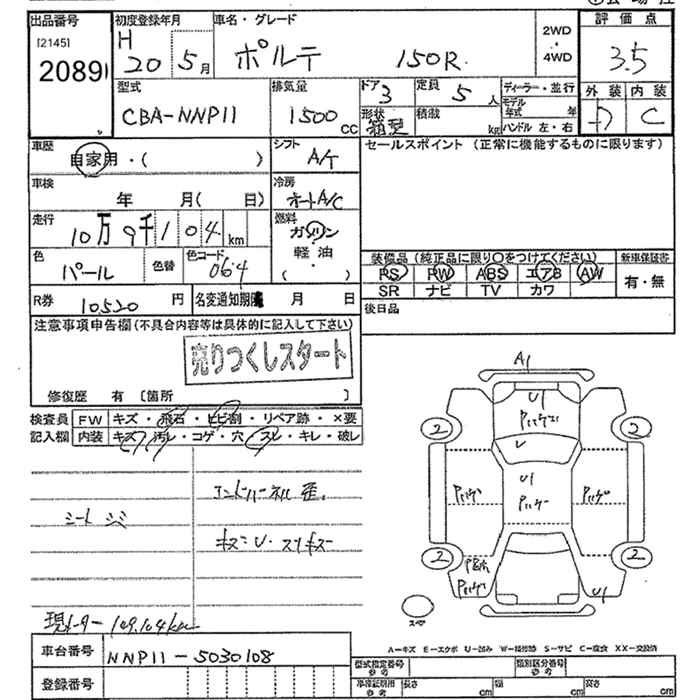 出品番号
[2145]
2089
初度登録年月
H
20 5月
車名・グレード
ポルテ 150R
2WD
・
4WD
評価点
3.5
外装 内装
C
型式
CBA-NNP11
排気量
1500 CC
ドア 3
形状 箱型
定員 5 人
積載 kg
ディーラー・並行
モデル年式 年
ハンドル 左・右
車歴
自家用・( )
シフト
A/T
セールスポイント (正常に機能するものに限ります)
車検
年 月( 日)
冷房
オートA/C
走行
10万9千104 km
燃料
ガソリン
軽油
( ・ )
色
パール
色替
色コード
064
装備品 (純正品に限り〇をつけてください)
PS PW ABS エアB AW
SR ナビ TV カワ
新車保証書
有・無
R券 10520 円
名変通知期限 月 日
後日品
注意事項申告欄 (不具合内容等は具体的に記入して下さい)
売りつくしスタート
修復歴 有 〔箇所 〕
検査員 FW キズ・飛石・ヒビ割・リペア跡・×要
記入欄 内装 キズ・汚レ・コゲ・穴・スレ・キレ・破レ
シート シミ
歪
キズ U・スリキズ
A1
U1
2 2
U
U1
2 2
U1
スペア
現メーター 109,104km
A－キズ E－エクボ U－凹み W－補修跡 S－サビ C－腐食 XX－交換済
車台番号 NNP11-5030108
登録番号
型式指定番号 参考
類別区分番号 参考
車検証期用 参考 長さ cm 幅 cm 高さ cm